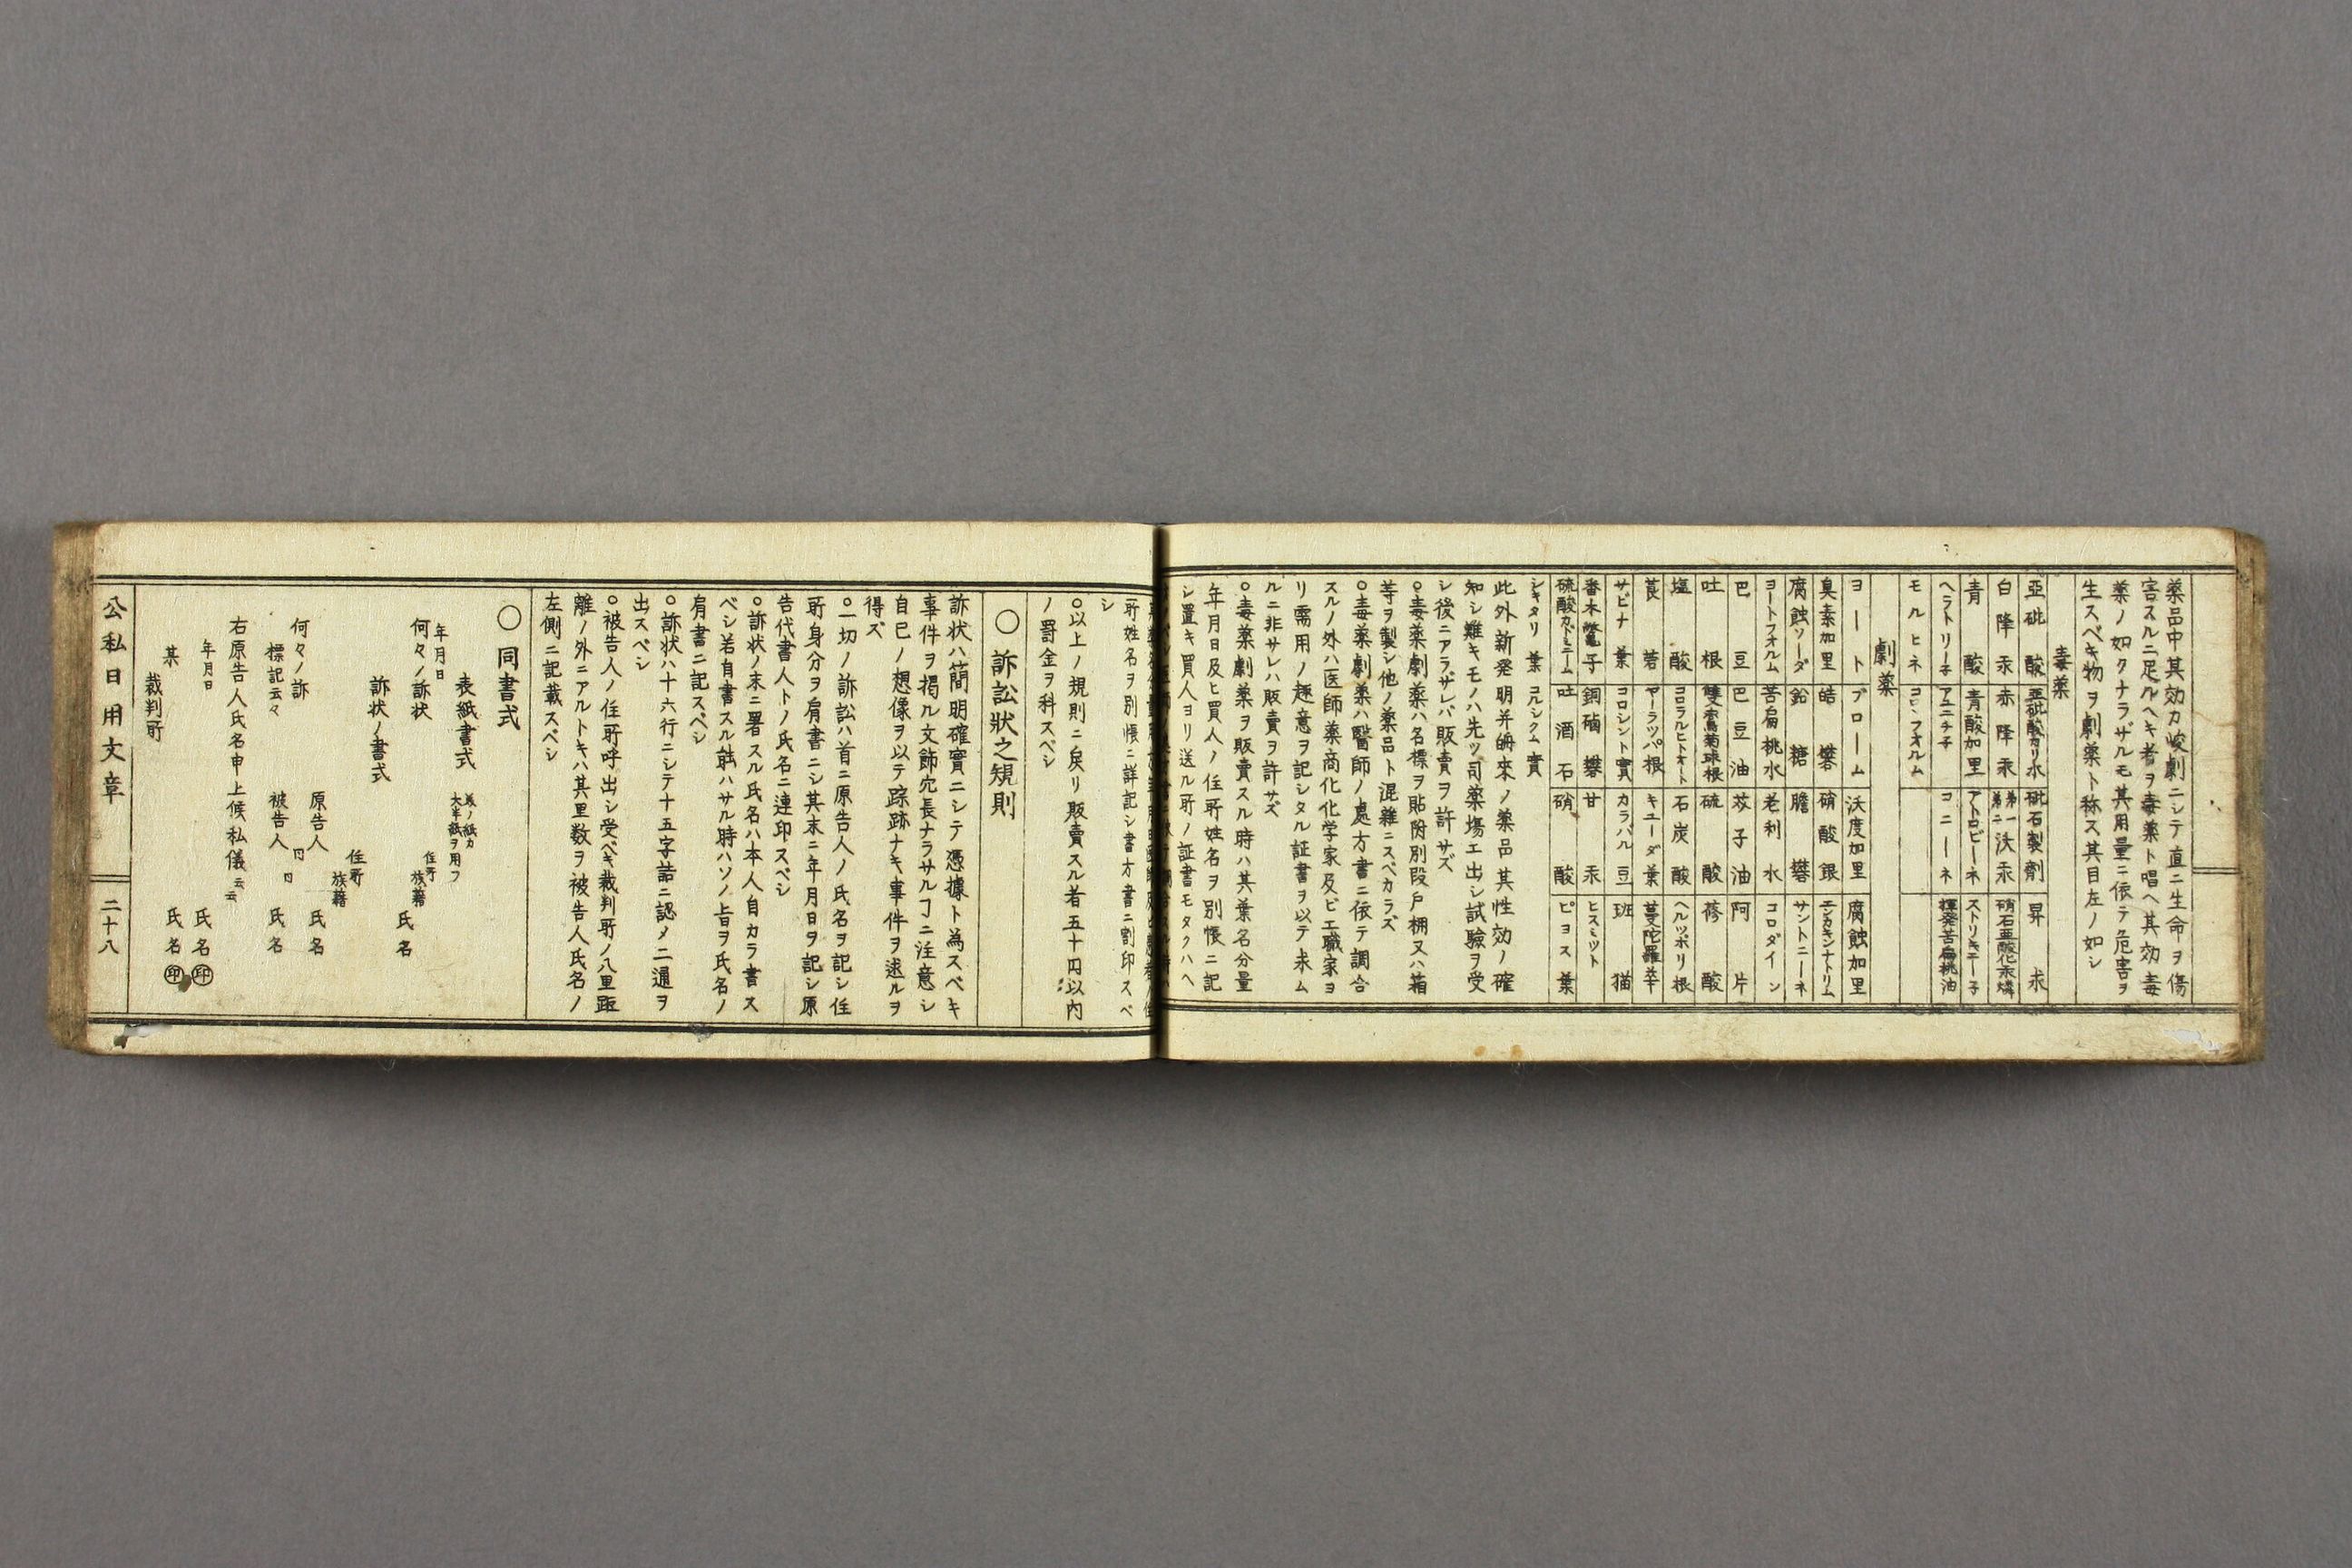 薬品中其効力峻劇ニシテ直ニ生命ヲ傷
害スルニ足ルヘキ者ヲ毒薬ト唱ヘ其効毒
薬ノ如クナラザルモ其用量ニ依テ危害ヲ
生スベキ物ヲ劇薬ト称ス其目左ノ如シ
毒薬
亞砒酸 亜砒酸カリ水 砒石製劑 昇汞
白降汞 赤降汞 第一第二沃汞 硝石亜酸化汞燐
青酸 青酸加里 アトロビーネ ストリキニー子
ヘラトリー子 アユニチ子 コニーネ 揮発苦扁桃油
モルヒネ コロヽフオルム
劇薬
ヨート ブローム 沃度加里 腐蝕加里
臭素加里 皓礬 硝酸銀
腐蝕ソーダ 鉛糖 膽礬 サントニーネ
ヨートフオルム 苦扁桃水 老利水 コロダイン
巴豆 巴豆油 芥子油 阿片
吐根 硫酸 蓚酸
塩酸 コロラルヒトオート 石炭酸 ヘルツボリ根
莨菪 ヤーラツパ根 キユーダ葉 蔓陀羅華
サビナ葉 コロシント實 カラバル豆 班猫
番木鼈子 銅硇礬 甘汞 ヒスミツト
硫酸カドミニーム 吐酒石 硝酸 ピヨス葉
シキタリ葉 コルシクム實
此外新発明并舶来ノ薬品其性効ノ確
知シ難キモノハ先ツ司薬塲エ出シ試験ヲ受
シ後ニアラザレバ販賣ヲ許サズ
○毒薬劇薬ハ名標ヲ貼附別段戸棚又ハ箱
等ヲ製シ他ノ薬品ト混雜ニスベカラズ
○毒薬劇薬ハ醫師ノ處方書ニ依テ調合
スルノ外ハ医師薬商化化学家及ビエ職家ヨ
リ需用ノ趣意ヲ記シタル証書ヲ以テ求ム
ルニ非サレハ販賣ヲ許サズ
○毒薬劇薬ヲ販賣スル時ハ其葉名分量
年月日及ヒ買人ノ住所姓名ヲ別帳ニ記
シ置キ買人ヨリ送ル所ノ証書モタクハヘ
所姓名ヲ別帳ニ詳記シ書方書ニ割印スベ
シ
○以上ノ規則ニ戻リ販賣スル者五十円以内
ノ罰金ヲ科スベシ
○訴訟狀之規則
訴状ハ簡明確實ニシテ憑據ト為スベキ
事件ヲ掲ル文飾冗長ナラサルヿニ注意シ
自巳ノ想像ヲ以テ踪跡ナキ事件ヲ述ルヲ
得ズ
○一切ノ訴訟ハ首ニ原告人ノ氏名ヲ記シ住
所身分ヲ肩書ニシ其末ニ年月日ヲ記シ原
告代書人トノ氏名ニ連印スベシ
○訴状ノ末ニ署スル氏名ハ本人自カラ書ス
ベシ若自書スル能ハサル時ハソノ旨ヲ氏名ノ
肩書ニ記スベシ
○訴状ハ十六行ニシテ十五字詰ニ認メ二通ヲ
出スベシ
○被告人ノ住所呼出シ受ベキ裁判所ノ八里距
離ノ外ニアルトキハ其里数ヲ被告人氏名ノ
左側ニ記載スベシ
○同書式
表紙書式 大半紙ヲ用フ
年月日 住所
何々ノ訴状 族籍
氏名
訴状ノ書式
住所
族籍
原告人 氏名
何々ノ訴 同
標記云々 被告人 同 氏名
右原告人氏名申上候私儀云云
年月日 氏名㊞
某 氏名㊞
裁判所
公私日用文章 二十八